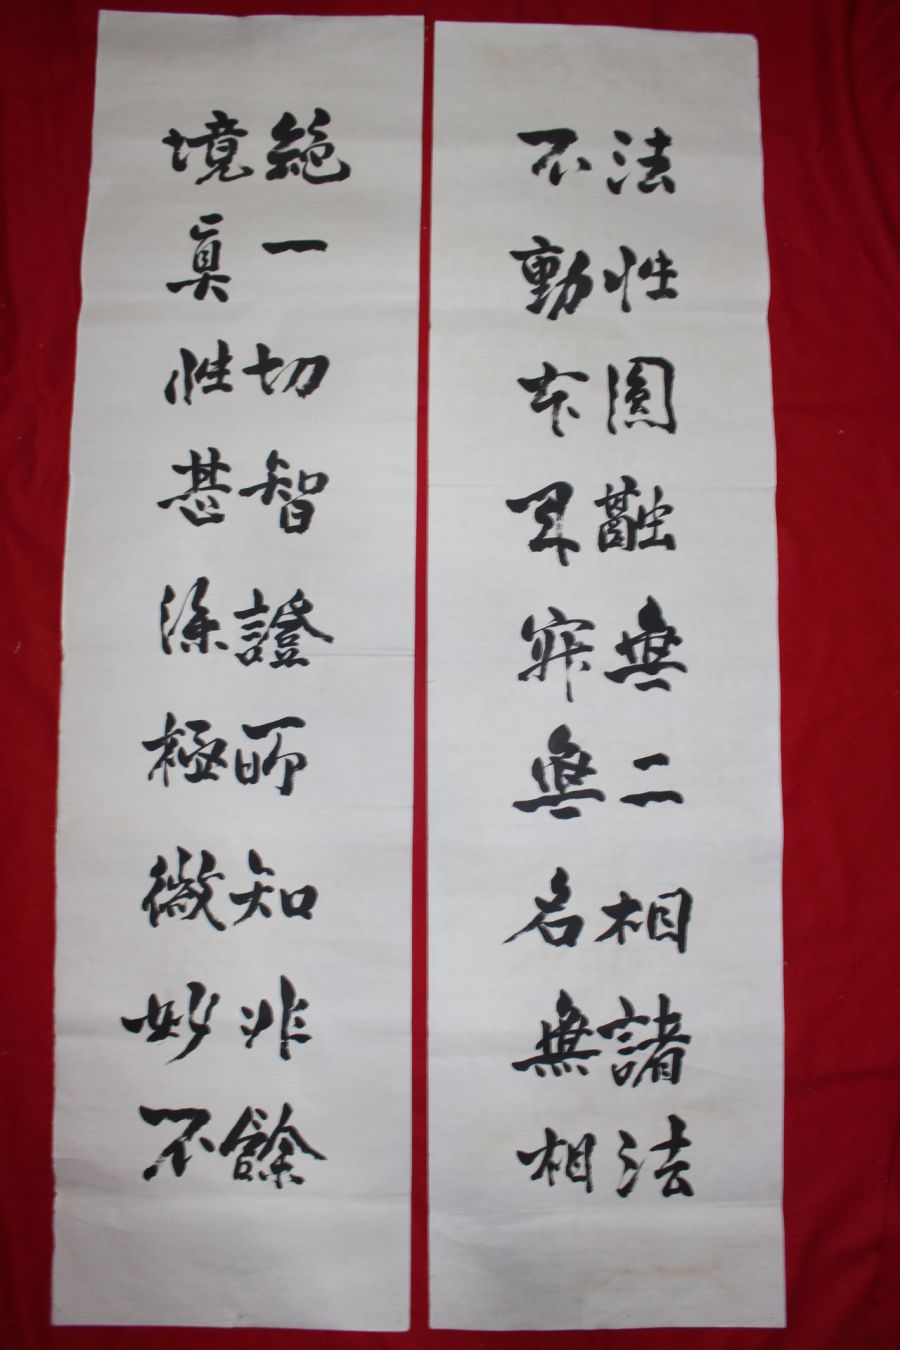 法性圓融無二相諸法
不動本来寂無名無相
絶一切智證所知非餘
境眞性甚深極微妙不